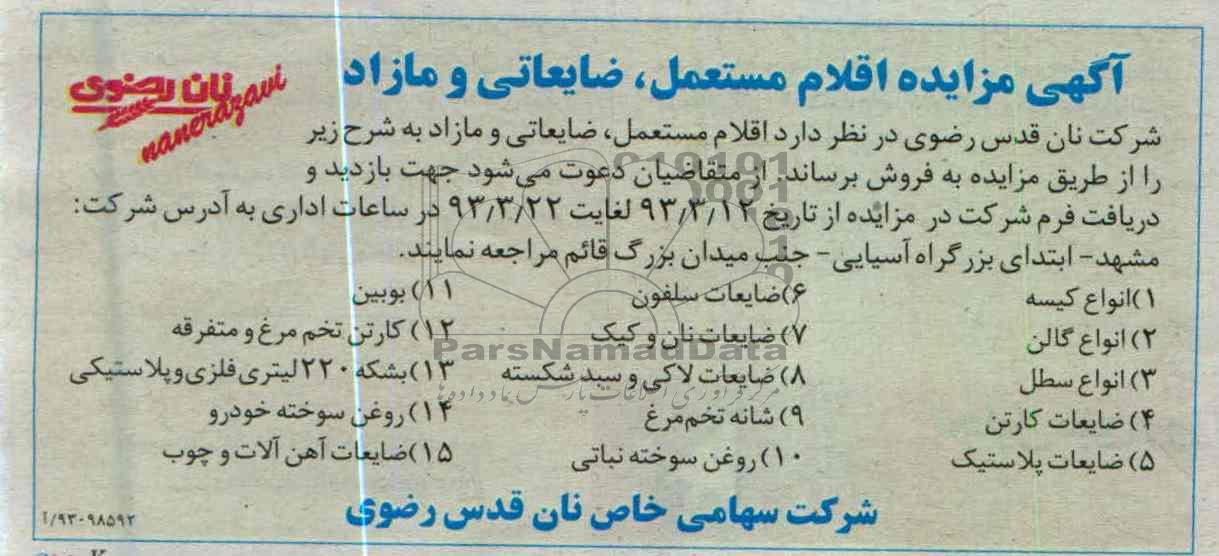 آگهی مزایده اقلام مستعمل، ضایعاتی و مازاد
نان رضوی
nanerazavi
شرکت نان قدس رضوی در نظر دارد اقلام مستعمل، ضایعاتی و مازاد به شرح زیر
را از طریق مزایده به فروش برساند. از متقاضیان دعوت می‌شود جهت بازدید و
دریافت فرم شرکت در مزایده از تاریخ ۹۳٫۳٫۱۲ لغایت ۹۳٫۳٫۲۲ در ساعات اداری به آدرس شرکت:
مشهد- ابتدای بزرگراه آسیایی- جنب میدان بزرگ قائم مراجعه نمایند.
۱)انواع کیسه
۲) انواع گالن
۳) انواع سطل
۴) ضایعات کارتن
۵) ضایعات پلاستیک
۶)ضایعات سلفون
۷) ضایعات نان و کیک
۸) ضایعات لاکی و سبد شکسته
۹) شانه تخم‌مرغ
۱۰) روغن سوخته نباتی
۱۱) بوبین
۱۲) کارتن تخم مرغ و متفرقه
۱۳)بشکه ۲۲۰ لیتری فلزی و پلاستیکی
۱۴) روغن سوخته خودرو
۱۵)ضایعات آهن آلات و چوب
ParsNamadData
شرکت سهامی خاص نان قدس رضوی
۹۳۰۹۸۵۹۲/آ